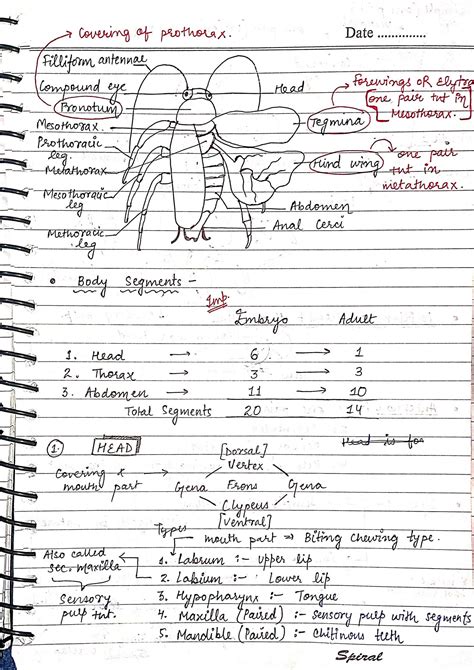 Covering of prothorax.
Date ..............
Filliform antennae
Compound eye
Head
Forewings OR Elytra
one pair tnt in
Mesothorax.
Pronotum
Tegmina
Mesothorax
Prothoracic
leg
Metathorax
Hind wing
one pair
tnt in
metathorax.
Mesothoracic
leg
Abdomen
Methoracic
leg
Anal Cerci
• Body Segments -
Imp.
Embryo Adult
1. Head → 6 → 1
2. Thorax → 3 → 3
3. Abdomen → 11 → 10
Total Segments 20 14
Head is for
1. HEAD
[Dorsal]
Vertex
Covering x
mouth part
Gena Frons Gena
Clypeus
[Ventral]
Types
mouth part ⇒ Biting chewing type.
Also called
sec. maxilla
1. Labrum :- upper lip
2. Labium :- Lower lip
Sensory
pulp tnt.
3. Hypopharynx :- Tongue
4. Maxilla (Paired) :- Sensory pulp with segments
5. Mandible (Paired) :- Chitinous teeth
Spiral